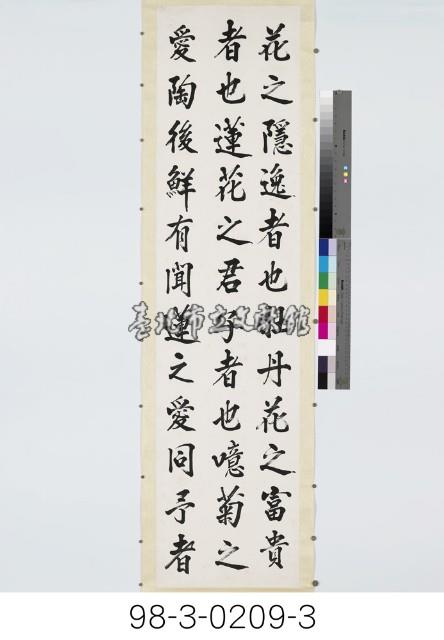 花之隱逸者也牡丹花之富貴
者也蓮花之君子者也噫菊之
愛陶後鮮有聞蓮之愛同予者
臺北市立文獻館
98-3-0209-3